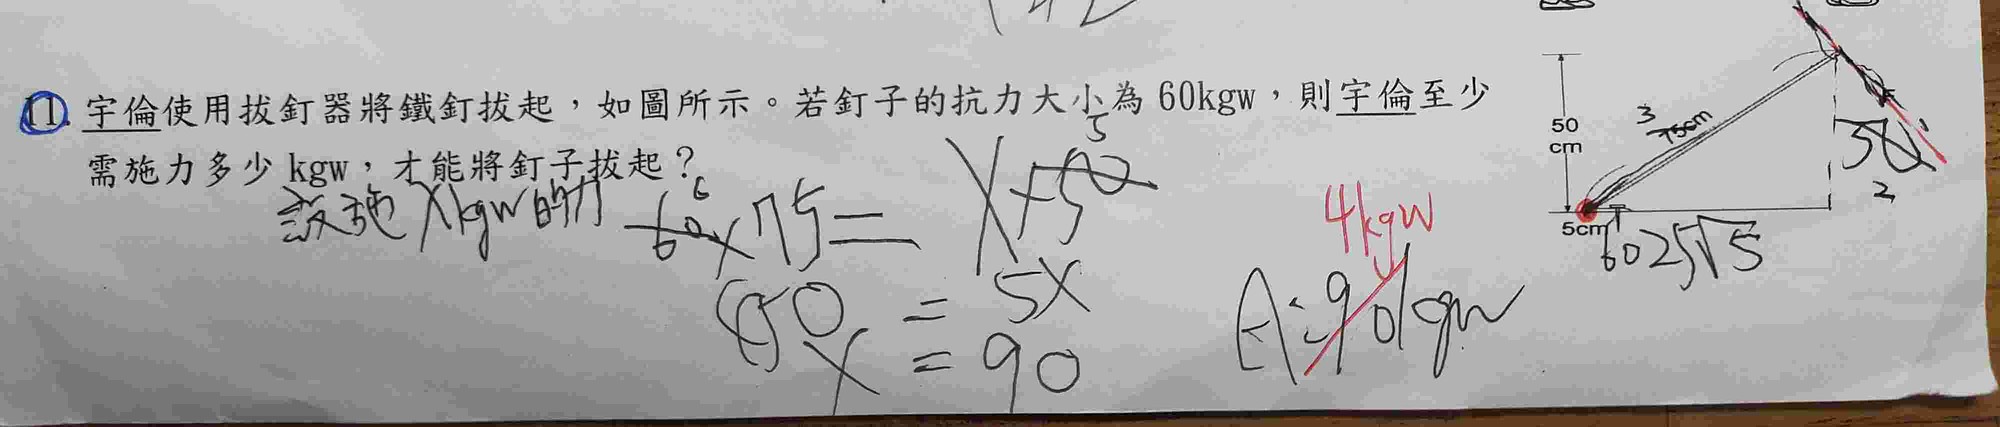 11. 宇倫使用拔釘器將鐵釘拔起，如圖所示。若釘子的抗力大小為 60kgw，則宇倫至少
需施力多少 kgw，才能將釘子拔起？
設施 X kgw 的力 60×75=X×50
6 5
450 = 5X
X = 90
4kgw
A:90kgw
50
cm
3
75cm
50
2
5cm
60 25√5